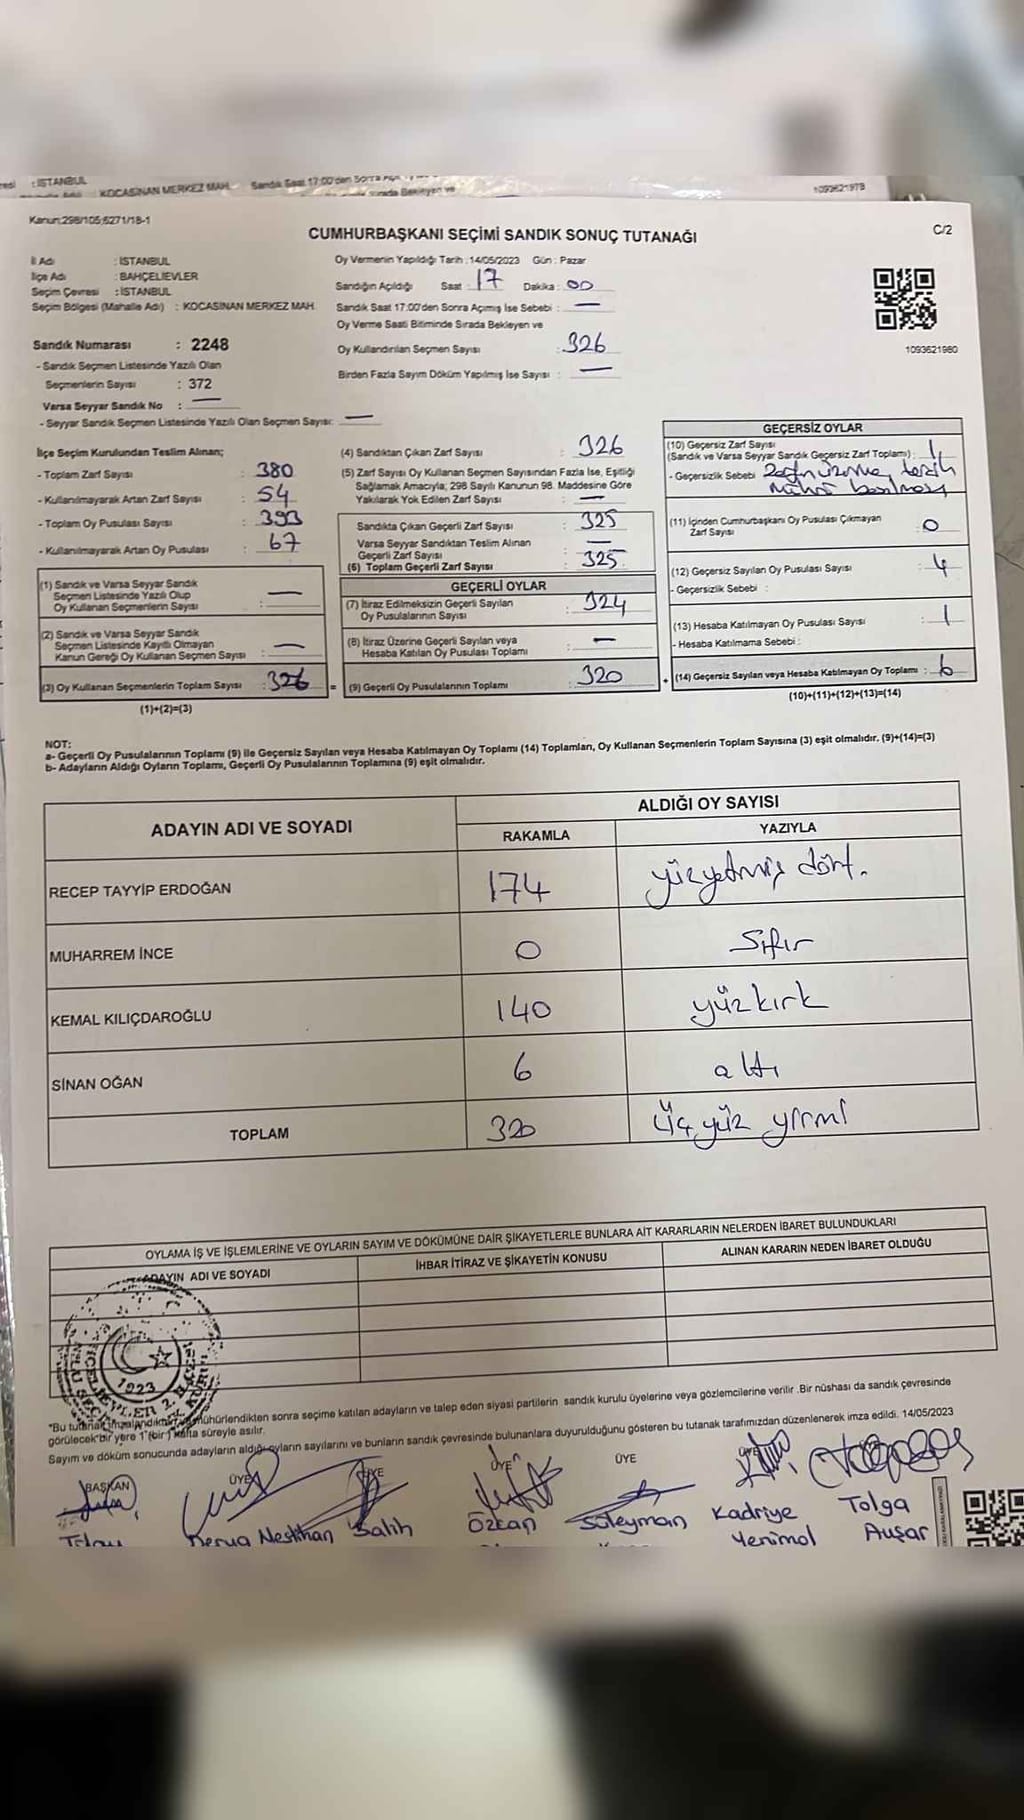 : İSTANBUL
KOCASİNAN MERKEZ MAH.
1093621978
Kanun:298/105;6271/18-1
C/2
CUMHURBAŞKANI SEÇİMİ SANDIK SONUÇ TUTANAĞI
İl Adı : İSTANBUL
İlçe Adı : BAHÇELİEVLER
Seçim Çevresi : İSTANBUL
Seçim Bölgesi (Mahalle Adı) : KOCASİNAN MERKEZ MAH.
Oy Vermenin Yapıldığı Tarih : 14/05/2023 Gün : Pazar
Sandığın Açıldığı Saat : 17 Dakika : 00
Sandık Saat 17:00'den Sonra Açımış İse Sebebi : —
Oy Verme Saati Bitiminde Sırada Bekleyen ve
Oy Kullandırılan Seçmen Sayısı : 326
Birden Fazla Sayım Döküm Yapılmış İse Sayısı : —
1093621980
Sandık Numarası : 2248
- Sandık Seçmen Listesinde Yazılı Olan
Seçmenlerin Sayısı : 372
Varsa Seyyar Sandık No : —
- Seyyar Sandık Seçmen Listesinde Yazılı Olan Seçmen Sayısı: —
İlçe Seçim Kurulundan Teslim Alınan;
- Toplam Zarf Sayısı : 380
- Kullanılmayarak Artan Zarf Sayısı : 54
- Toplam Oy Pusulası Sayısı : 393
- Kullanılmayarak Artan Oy Pusulası : 67
(1) Sandık ve Varsa Seyyar Sandık
Seçmen Listesinde Yazılı Olup
Oy Kullanan Seçmenlerin Sayısı : —
(2) Sandık ve Varsa Seyyar Sandık
Seçmen Listesinde Kayıtlı Olmayan
Kanun Gereği Oy Kullanan Seçmen Sayısı : —
(3) Oy Kullanan Seçmenlerin Toplam Sayısı : 326
(1)+(2)=(3)
(4) Sandıktan Çıkan Zarf Sayısı : 326
(5) Zarf Sayısı Oy Kullanan Seçmen Sayısından Fazla İse, Eşitliği
Sağlamak Amacıyla; 298 Sayılı Kanunun 98. Maddesine Göre
Yakılarak Yok Edilen Zarf Sayısı : —
Sandıkta Çıkan Geçerli Zarf Sayısı : 325
Varsa Seyyar Sandıktan Teslim Alınan
Geçerli Zarf Sayısı : —
(6) Toplam Geçerli Zarf Sayısı : 325
GEÇERLİ OYLAR
(7) İtiraz Edilmeksizin Geçerli Sayılan
Oy Pusulalarının Sayısı : 324
(8) İtiraz Üzerine Geçerli Sayılan veya
Hesaba Katılan Oy Pusulası Toplamı : —
= (9) Geçerli Oy Pusulalarının Toplamı : 320
GEÇERSİZ OYLAR
(10) Geçersiz Zarf Sayısı
(Sandık ve Varsa Seyyar Sandık Geçersiz Zarf Toplamı) : 1
- Geçersizlik Sebebi : Zarfın üzerine tercih
mührü basılması
(11) İçinden Cumhurbaşkanı Oy Pusulası Çıkmayan
Zarf Sayısı : 0
(12) Geçersiz Sayılan Oy Pusulası Sayısı : 4
- Geçersizlik Sebebi :
(13) Hesaba Katılmayan Oy Pusulası Sayısı : 1
- Hesaba Katılmama Sebebi :
+ (14) Geçersiz Sayılan veya Hesaba Katılmayan Oy Toplamı : 6
(10)+(11)+(12)+(13)=(14)
NOT:
a- Geçerli Oy Pusulalarının Toplamı (9) ile Geçersiz Sayılan veya Hesaba Katılmayan Oy Toplamı (14) Toplamları, Oy Kullanan Seçmenlerin Toplam Sayısına (3) eşit olmalıdır. (9)+(14)=(3)
b- Adayların Aldığı Oyların Toplamı, Geçerli Oy Pusulalarının Toplamına (9) eşit olmalıdır.
ADAYIN ADI VE SOYADI
ALDIĞI OY SAYISI
RAKAMLA YAZIYLA
RECEP TAYYİP ERDOĞAN 174 yüzyetmiş dört.
MUHARREM İNCE 0 Sıfır
KEMAL KILIÇDAROĞLU 140 yüzkırk
SİNAN OĞAN 6 altı
TOPLAM 320 Üçyüz yirmi
OYLAMA İŞ VE İŞLEMLERİNE VE OYLARIN SAYIM VE DÖKÜMÜNE DAİR ŞİKAYETLERLE BUNLARA AİT KARARLARIN NELERDEN İBARET BULUNDUKLARI
ADAYIN ADI VE SOYADI İHBAR İTİRAZ VE ŞİKAYETİN KONUSU ALINAN KARARIN NEDEN İBARET OLDUĞU
1923
*Bu tutanak imzalandıktan mühürlendikten sonra seçime katılan adayların ve talep eden siyasi partilerin sandık kurulu üyelerine veya gözlemcilerine verilir .Bir nüshası da sandık çevresinde
görülecek bir yere 1 (bir) hafta süreyle asılır.
Sayım ve döküm sonucunda adayların aldığı oyların sayılarını ve bunların sandık çevresinde bulunanlara duyurulduğunu gösteren bu tutanak tarafımızdan düzenlenerek imza edildi. 14/05/2023
BAŞKAN ÜYE ÜYE ÜYE ÜYE ÜYE
Derya Neslihan Salih Özkan Süleyman Kadriye Tolga
Yenimol Avşar